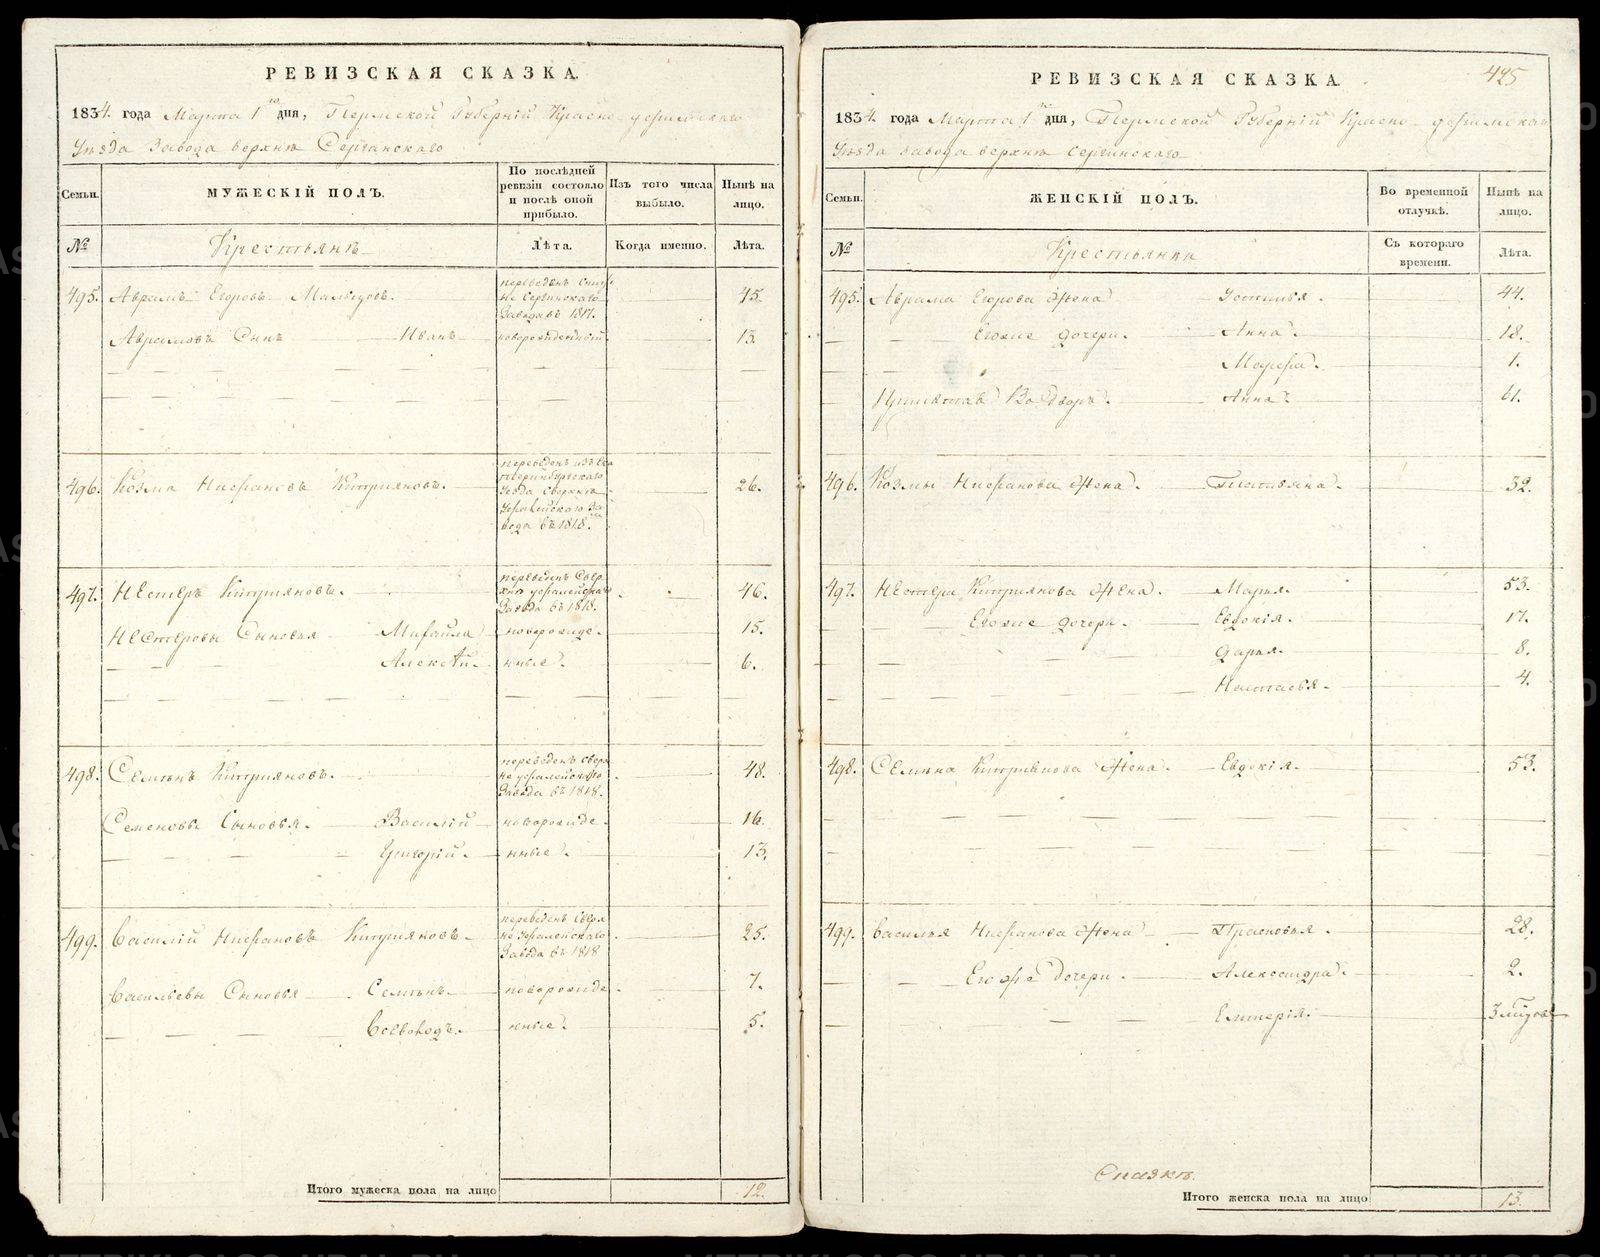 РЕВИЗСКАЯ СКАЗКА.
1834. года Марта 1го дня, Пермской Губернiй Красно уфимскаго
Уѣзда Завода верхнѣ Сергинскаго
Семьи. МУЖЕСКІЙ ПОЛЪ. По послѣдней ревизіи состояло и послѣ оной прибыло. Изъ того числа выбыло. Нынѣ на лицо.
№ Крестьянѣ Лѣта. Когда именно. Лѣта.
495. Аврамъ Егоровъ переведенъ Сниж не Сергинскаго Завода въ 1817. 45.
Аврамовъ Сынъ Иванъ новорожденный 13.
496. Козма Кипрiяновъ. переведенъ изъ Ека теринбургскаго Уѣзда Сверхнѣ Уфалейскаго За вода въ 1818. 26.
497. Нестеръ Кипрiяновъ. переведенъ Свер хнѣ уфалейскаго Завода въ 1818. 46.
Нестеровы Сыновья Михайла новорожде- 15.
Алексѣй нные. 6.
498. Семенъ Кипрiяновъ. переведенъ Сверх не уфалейскаго Завода въ 1818. 48.
Семеновы Сыновья. Василiй новорожде- 16.
Григорiй. нные. 13.
499. Василiй Кипрiяновъ переведенъ Сверх не Уфалейскаго Завода въ 1818 25.
Васильевы Сыновья Семенъ. новорожде 7.
Всеволодъ. нные. 5.
Итого мужеска пола на лицо 12.
425
РЕВИЗСКАЯ СКАЗКА.
1834. года Марта 1го дня, Пермской Губернiй Красно уфимскаго
Уѣзда завода верхнѣ Сергинскаго
Семьи. ЖЕНСКІЙ ПОЛЪ. Во временной отлучкѣ. Нынѣ на лицо.
№ Крестьянки Съ котораго времени. Лѣта.
495. Аврама Егорова Жена Устинья. 44.
Егоже дочери. Анна. 18.
Марфа. 1.
Анна. 61.
496. Козмы Жена. Татьяна. 32.
497. Нестера Кипрiянова Жена. Марья. 53.
Егоже дочери. Евдокiя. 17.
Дарья. 8.
Настасья. 4.
498. Семена Кипрiянова Жена. Евдокiя. 53.
499. Василья Жена Прасковья. 28.
Его же Дочери. Александра. 2.
3
Итого женска пола на лицо 13.